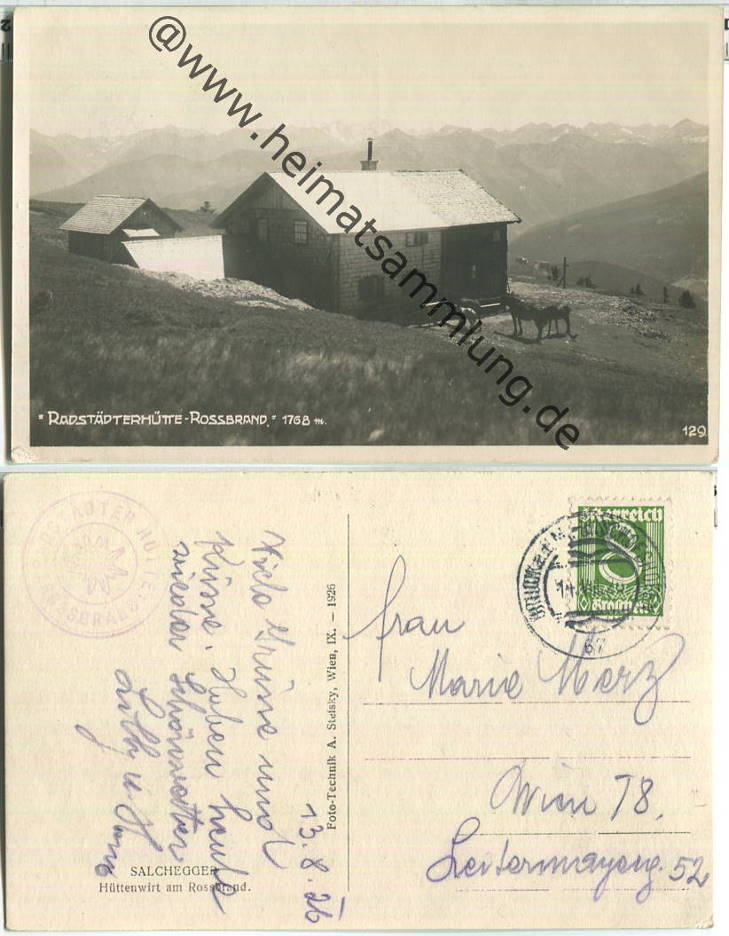 @www.heimatsammlung.de
"RADSTÄDTERHÜTTE-ROSSBRAND." 1768 m.
129
RADSTÄDTER HÜTTE
ROSSBRAND
13.8.26
Viele Grüsse und
Küsse. Haben heute
wieder Schönwetter
SALCHEGGER
Hüttenwirt am Rossbrand.
Foto-Technik A. Stelsky, Wien, IX. – 1926
Österreich
Groschen
67
Frau
Marie Merz
Wien 18.
Leitermayerg. 52